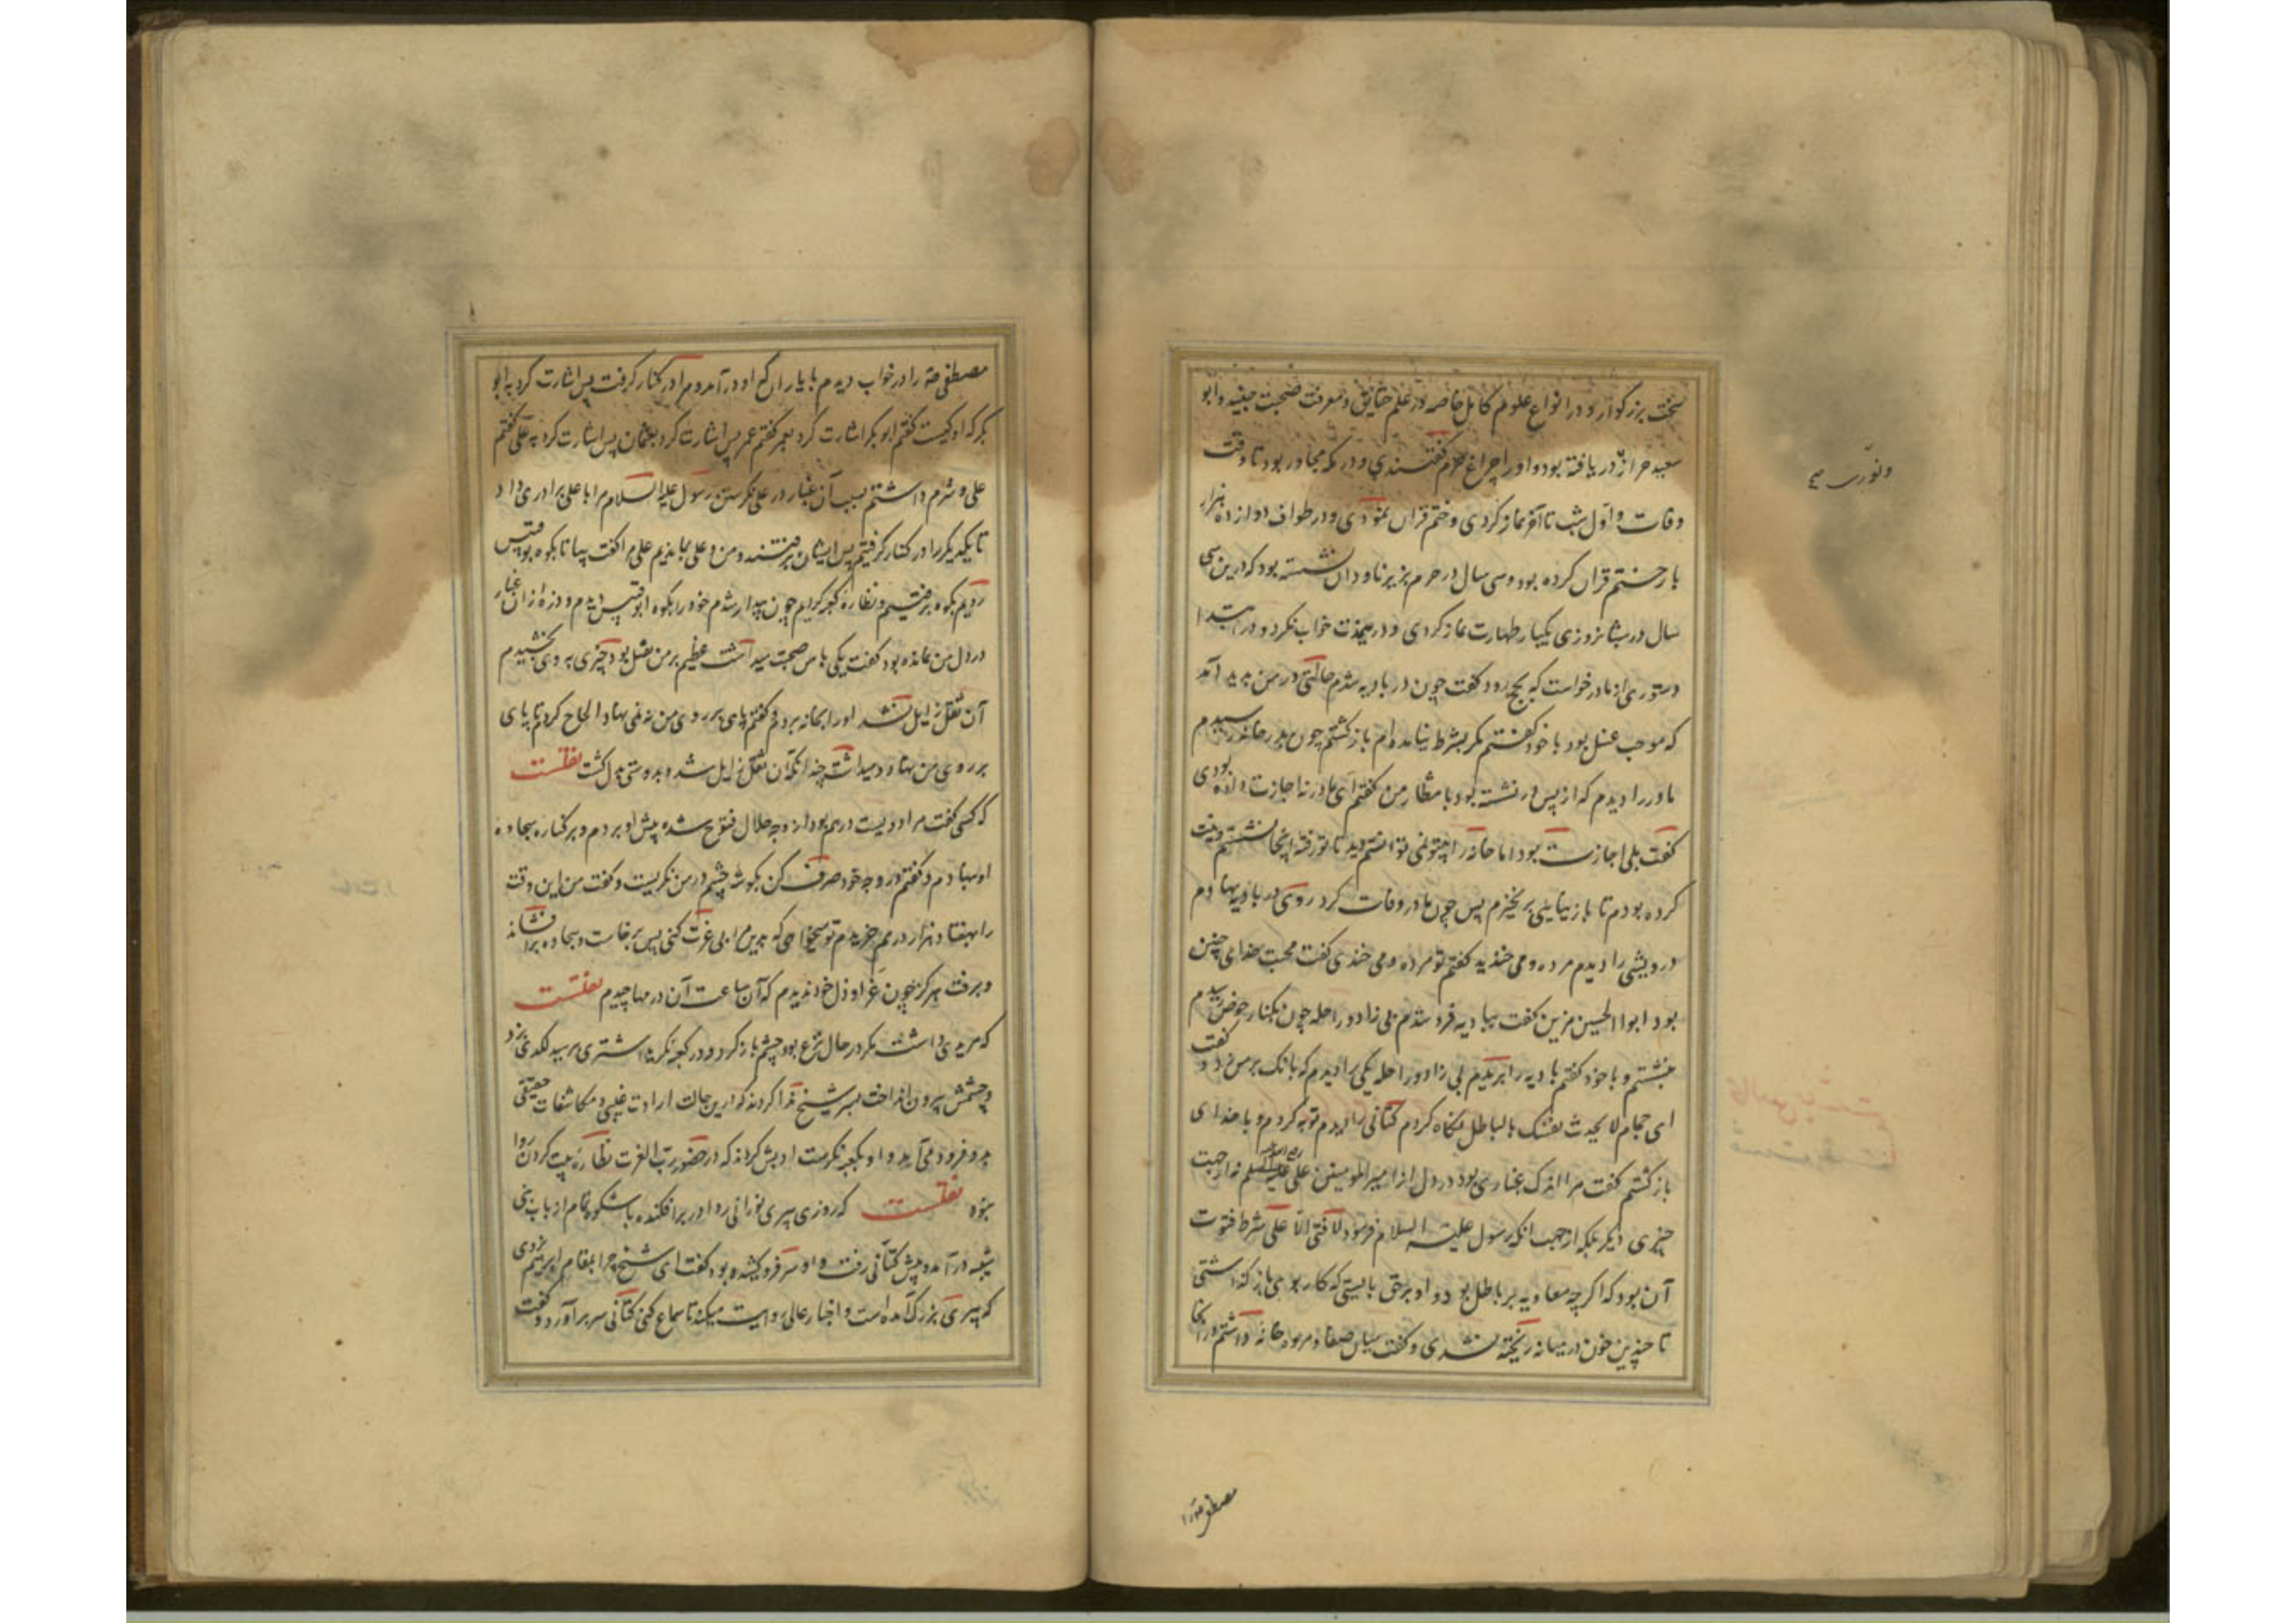 سخت بزرکوار و در انواع علوم کامل خاصه در علم حقایق و معرفت صحبت جنید و ابو
سعید خراز دریافته بود و او را چراغ حرم کفتندی و در مکه مجاور بود تا وقت
وفات و اول شب تا آخر نماز کردی و ختم قران نمودی و در طواف دوازده هزار
بار ختم قران کرده بود و سی سال در حرم بزیر ناودان نشسته بود که درین سی
سال در شبانروزی یکبار طهارت نماز کردی و درین مدت خواب نکرد و در ابتدا
دستوری از مادر خواست که بحج رود کفت چون در بادیه شدم حالتی در من پدید آمد
که موجب غسل بود با خود کفتم مکر بشرط نیامده ام باز کشتم چون بدر خانه رسیدم
مادر را دیدم که از پس در نشسته بود بانتظار من کفتم ای مادر نه اجازت داده بودی
کفت بلی اجازت بود اما خانه را بیتو نمی توانستم دید تا تو رفته اینجا نشستم و نیت
کرده بودم تا باز نیایی برنخیزم پس چون مادر وفات کرد روی در بادیه نهادم
درویشی را دیدم مرده و می خندید کفتم تو مرده و می خندی کفت محبت خدای چنین
بود ابوا الحسین مزین کفت ببادیه فرو شدم بی زاد و راحله چون بکنار حوض رسیدم
بنشستم و با خود کفتم بادیه را بریدم بی زاد و راحله یکی را دیدم که بانک بر من زد و کفت
ای حجام لا یحدث نفسک بالباطل نکاه کردم کتانی را دیدم توبه کردم و با خدای
باز کشتم کفت مرا اندک غباری بود در دل از امیر المومنین علی علیه السلم نه از جهت
چیزی دیکر بلکه از جهت انکه رسول علیه السلام فرمود لا فتی الا علی شرط فتوت
آن بود که اکرچه معاویه بر باطل بود و او بر حق بایستی که کار بوی باز کذاشتی
تا چندین خون در میانه ریخته نشدی و کفت میان صفا و مروه خانه داشتم در آنجا
مصطفی صه را
ونورت
مصطفی صه را در خواب دیدم با یاران که او در آمد و مرا در کنار کرفت پس اشارت کرد به ابو
بکر که او کیست کفتم ابو بکر اشارت کرد بعمر کفتم عمر پس اشارت کرد بعثمان پس اشارت کرد به علی کفتم
علی و شرم داشتم بسبب آن غبار در علی نکرستن رسول علیه السلام مرا با علی برادری داد
تا یکدیکر را در کنار کرفتیم پس ایشان برفتند و من و علی بماندیم علی مرا کفت بیا تا بکوه بوقبیس
رویم بکوه برفتیم و نظاره کعبه کردیم چون بیدار شدم خود را بکوه ابو قبیس دیدم و ذره از آن غبار
در دل من نمانده بود کفت یکی با من صحبت میداشت عظیم بر من ثقیل بود چیزی به وی بخشیدم
آن ثقل زایل نشد او را بخانه بردم و کفتم پای بر روی من نه نمی نهاد الحاح کردم تا پای
بر روی من نهاد و میداشت چندانکه آن ثقل زایل شد و بدوستی بدل کشت نقلست
که کسی کفت مرا دویست درم بود از وجه حلال فتوح شده پیش او بردم و بر کناره سجاده
او نهادم و کفتم در وجه خود صرف کن بکوشه چشم در من نکریست و کفت من این وقت
را بهفتاد هزار درم خریدم تو میخواهی که بدین مرا بی عزت کنی پس برخاست و سجاده برافشانه
و برفت هرکز چون عز او ذل خود ندیدم که آن ساعت آن درمها چیدم نقلست
که مریدی داشت مکر در حال نزع بود چشم باز کرد و در کعبه نکریست اشتری برسید لکدی بزد
و چشمش بیرون انداخت بسر شیخ ندا کردند که درین حالت ارادت غیبی و مکاشفات حقیقی
بدو فرود می آمد و او بکعبه نکرست ادبش کردند که در حضور رب العزت نظاره بیت کردن روا
نبود نقلست که روزی پیری نورانی ردا در برافکنده باشکوه تمام از باب بنی
شیبه درآمد و پیش کتانی رفت و او سر فرو کشیده بود کفت ای شیخ چرا بمقام ابرهیم نروی
که پیری بزرک آمده است و اخبار عالی روایت میکند تا سماع کنی کتانی سر برآورد و کفت